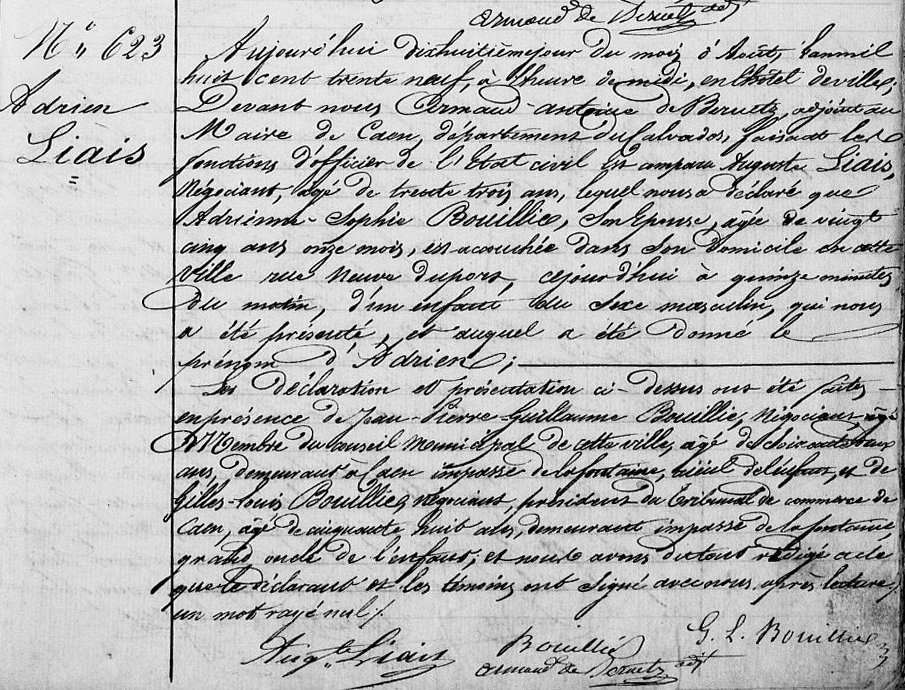 Armand de
N° 623
Adrien
Liais
Aujourd'hui dixhuitième jour du mois d'Août, l'an mil
huit cent trente neuf, à l'heure de midi, en l'hôtel de ville,
Devant nous, Armand-Antoine de adjoint au
Maire de Caen, département du Calvados, faisant les
fonctions d'officier de l'Etat civil Est comparu Auguste Liais,
Négociant, âgé de trente trois ans, lequel nous a déclaré que
Adrienne-Sophie Bouillie, Son Epouse, âgée de vingt
cinq ans onze mois, est accouchée dans son domicile en cette
Ville rue Neuve du port, cejourd'hui à quinze minutes
du matin, d'un enfant du Sexe masculin, qui nous
a été présenté, et auquel a été donné le
prénom d'Adrien;
Les déclaration et présentation ci-dessus ont été faites
en présence de Jean-Pierre-Guillaume Bouillie, Négociant,
Membre du Conseil Municipal de cette ville, âgé de
ans, demeurant à Caen impasse de la fontaine, aïeul de l'enfant, et de
Gilles-Louis Bouillie, négociant, président du Tribunal de commerce de
Caen, âgé de cinquante huit ans, demeurant impasse de la fontaine,
grand oncle de l'enfant; et nous avons du tout rédigé acte
que le déclarant et les témoins ont signé avec nous après lecture,
un mot rayé nul /.
Aug.te Liais
Bouillie
G. L. Bouillie
Armand de adjt